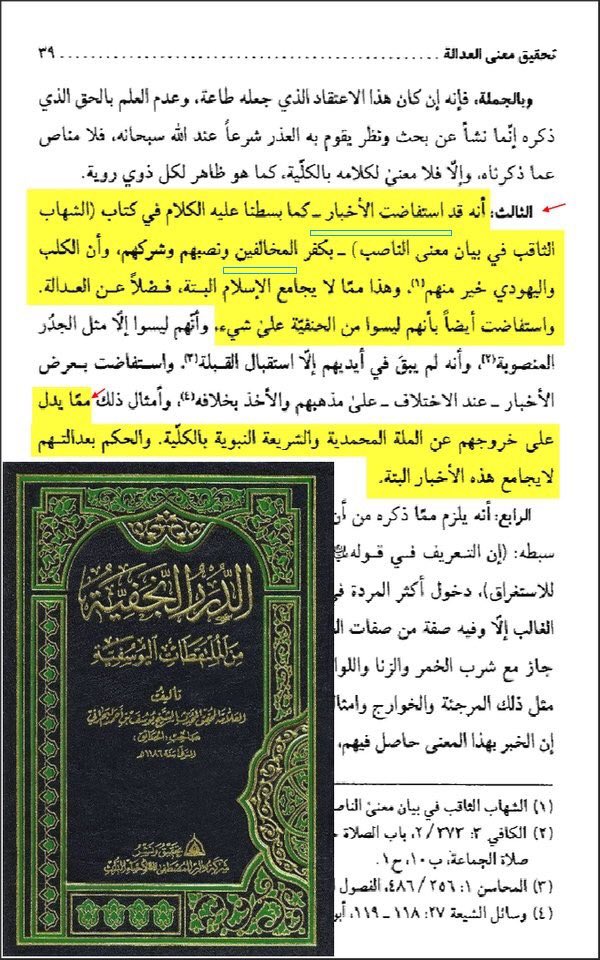 تحقيق معنى العدالة ........................................ ٣٩
وبالجملة، فإنه إن كان هذا الاعتقاد الذي جعله طاعة، وعدم العلم بالحق الذي
ذكره إنّما نشأ عن بحث ونظر يقوم به العذر شرعاً عند الله سبحانه، فلا مناص
عما ذكرناه، وإلّا فلا معنىٰ لكلامه بالكلّية، كما هو ظاهر لكل ذوي روية.
الثالث: أنه قد استفاضت الأخبار ـ كما بسطنا عليه الكلام في كتاب (الشهاب
الثاقب في بيان معنى الناصب) ـ بكفر المخالفين ونصبهم وشركهم، وأن الكلب
واليهودي خير منهم(١)، وهذا ممّا لا يجامع الإسلام البتة، فضلاً عن العدالة.
واستفاضت أيضاً بأنهم ليسوا من الحنفيّة علىٰ شيء، وأنّهم ليسوا إلّا مثل الجدُر
المنصوبة(٢)، وأنه لم يبقَ في أيديهم إلّا استقبال القبلة(٣). واستفاضت بعرض
الأخبار ـ عند الاختلاف ـ علىٰ مذهبهم والأخذ بخلافه(٤)، وأمثال ذلك ممّا يدل
على خروجهم عن الملة المحمدية والشريعة النبوية بالكلّية. والحكم بعدالتهم
لا يجامع هذه الأخبار البتة.
الرابع: أنه يلزم ممّا ذكره من أن
سبطه: (إن التعريف في قوله
للاستغراق)، دخول أكثر المردة في
الغالب إلّا وفيه صفة من صفات
جاز مع شرب الخمر والزنا واللوا
مثل ذلك المرجئة والخوارج وامثا
إن الخبر بهذا المعنى حاصل فيهم،
(١) الشهاب الثاقب في بيان معنىٰ الناص
(٢) الكافي ٣: ٣٧٣ / ٢، باب الصلاة
صلاة الجماعة، ب ١٠، ح ١.
(٣) المحاسن ١: ٢٥٦ / ٤٨٦، الفصول
(٤) وسائل الشيعة ٢٧: ١١٨ ـ ١١٩، أبو
الدرر النجفية
من الملتقطات اليوسفية
تأليف
المتوفى سنة ١١٨٦هـ
تحقيق ونشر